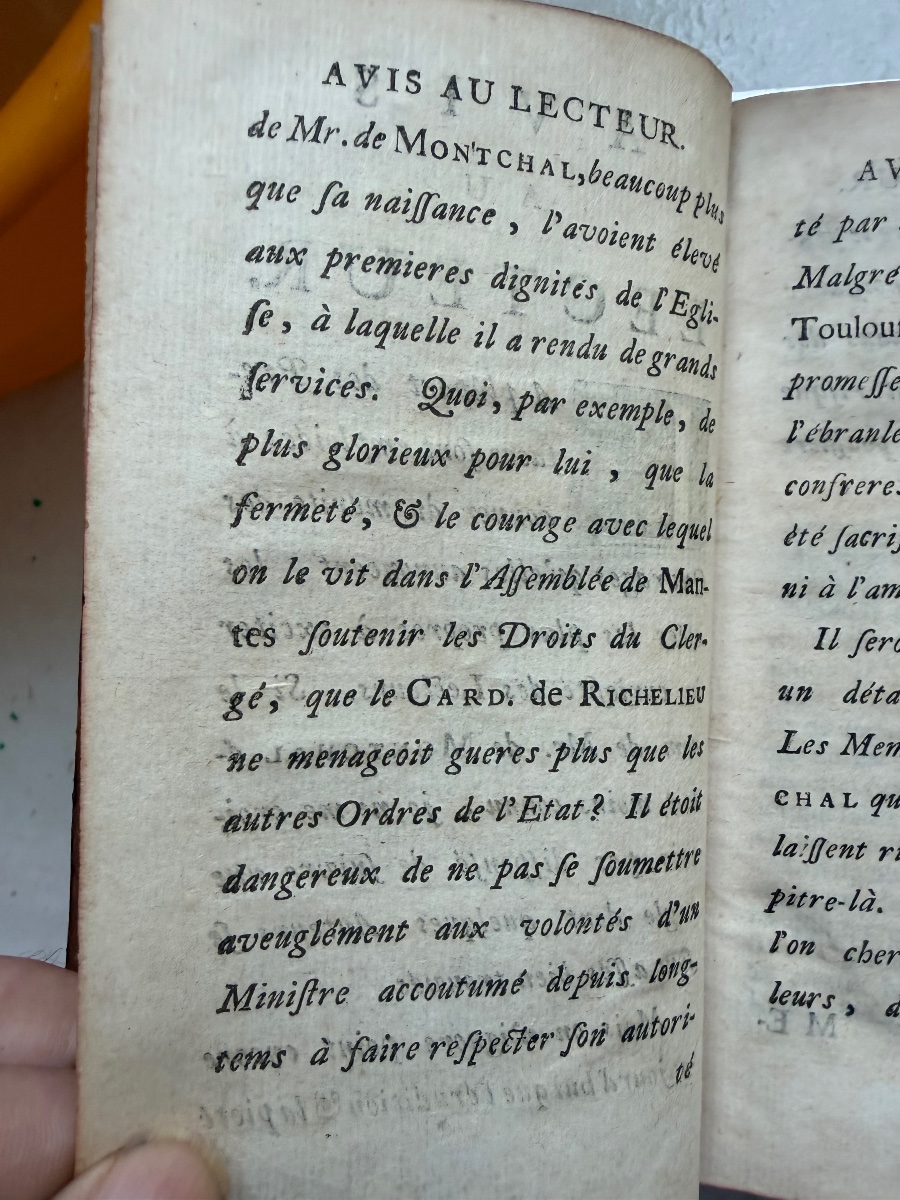 AVIS AU LECTEUR.
de Mr. de MONTCHAL, beaucoup plus
que ſa naiſſance , l'avoient élevé
aux premieres dignités de l'Egli-
ſe , à laquelle il a rendu de grands
ſervices. Quoi, par exemple, de
plus glorieux pour lui , que la
fermeté, & le courage avec lequel
on le vit dans l'Aſſemblée de Man-
tes ſoutenir les Droits du Cler-
gé, que le CARD. de RICHELIEU
ne menageoit gueres plus que les
autres Ordres de l'Etat? Il étoit
dangereux de ne pas ſe ſoumettre
aveuglément aux volontés d'un
Miniſtre accoutumé depuis long-
tems à faire reſpecter ſon autori-
té
AV
té par
Malgré
Toulouſ
promeſſe
l'ébranle
confrere
été ſacrif
ni à l'am
Il ſero
un déta
Les Mem
CHAL qu
laiſſent ri
pitre-là.
l'on cher
leurs, d